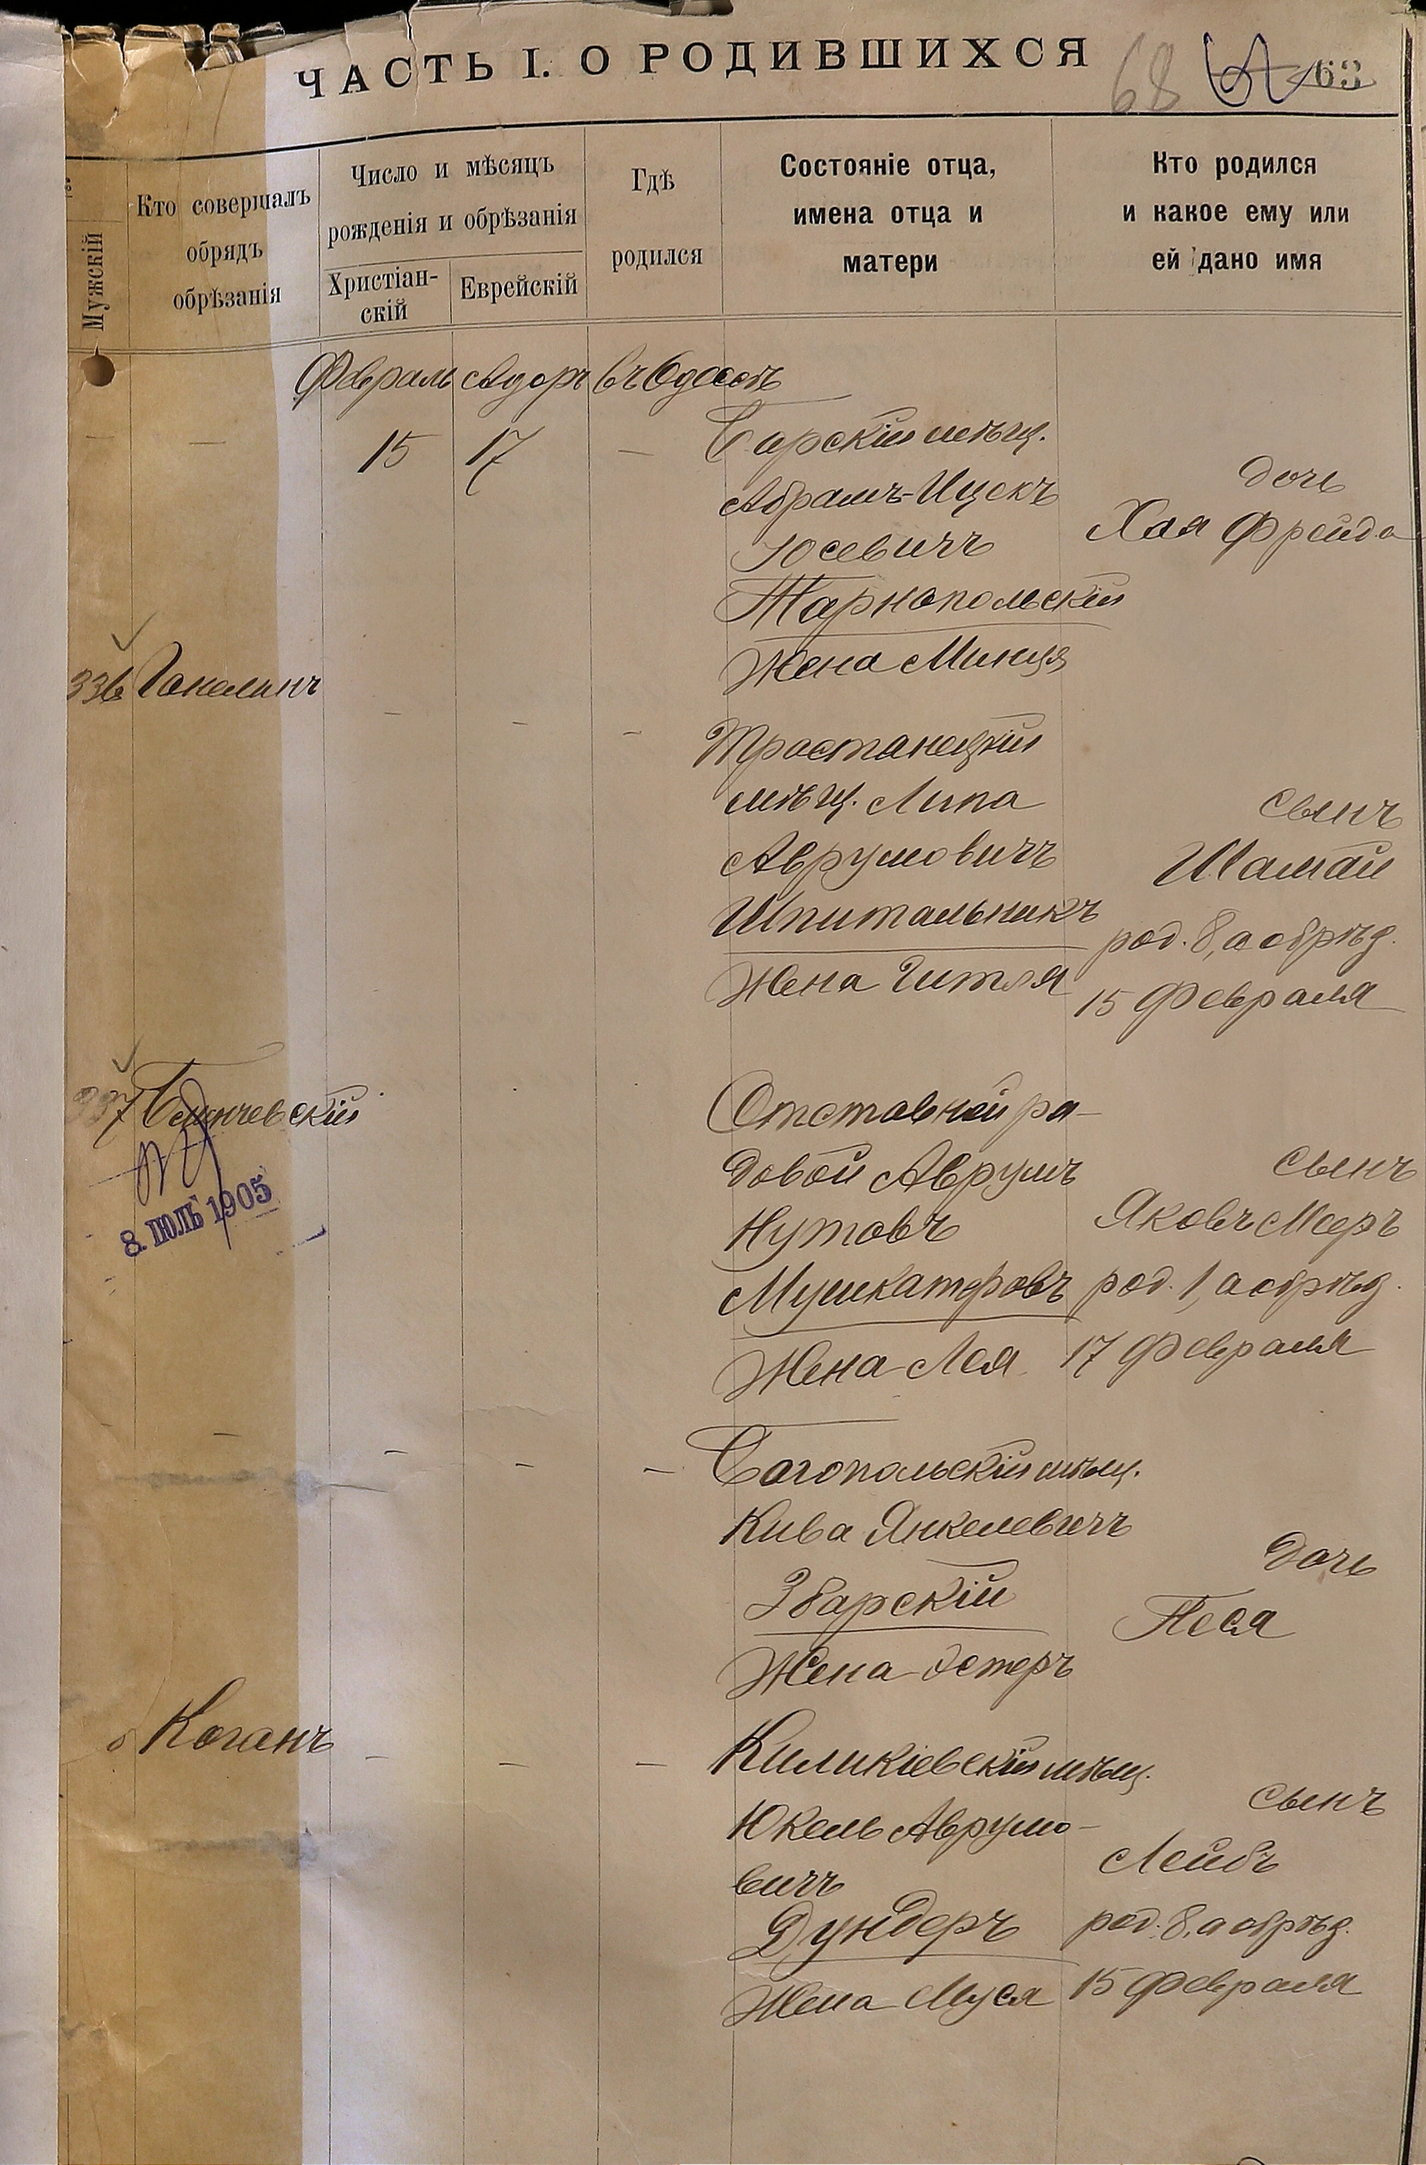 ЧАСТЬ I. О РОДИВШИХСЯ
68
63
Мужскій
Кто совершалъ
обрядъ
обрѣзанія
Число и мѣсяцъ
рожденія и обрѣзанія
Христіан-
скій
Еврейскій
Гдѣ
родился
Состояніе отца,
имена отца и
матери
Кто родился
и какое ему или
ей дано имя
Февраль Адоръ въ Одессѣ
— — 15 17 —
Барскій мѣщ.
Абрамъ-Ицекъ
Юсевичъ
Тарнопольскій
Жена Минця
дочь
Хая Фрейда
336 Ганелинъ
— — —
Тростанецкій
мѣщ. Липа
Аврумовичъ
Шпитальникъ
Жена Гитля
сынъ
Шамай
род. 8, а обрѣз.
15 Февраля
337
8. ІЮЛЬ 1905
Отставной ря-
довой Аврумъ
Нутовъ
Мушкатеровъ
Жена Лея
сынъ
Яковъ Мееръ
род. 1, а обрѣз.
17 Февраля
— — — —
Богопольскій мѣщ.
Кива Янкелевичъ
Збарскій
Жена Эстеръ
дочь
Песя
Коганъ
— — —
Киликіевскій мѣщ.
Юкель Аврумо-
вичъ
Дундеръ
Жена Муся
сынъ
Лейбъ
род. 8, а обрѣз.
15 Февраля